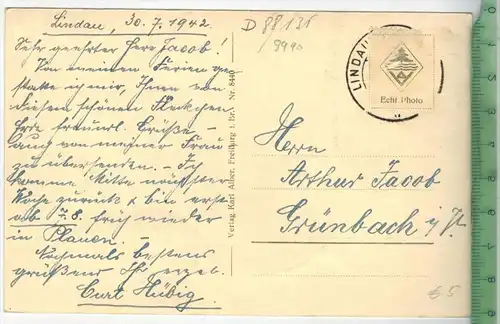 Lindau, 30.7.1942.
Sehr geehrter Herr Jacob!
Von meinen Ferien ge-
statte ich mir, Ihnen von
diesem schönen Fleckchen
Erde freundl. Grüße –
auch von meiner Frau
zu übersenden. – Ich
komme Mitte nächster
Woche zurück & bin erst
ab 7.8. früh wieder
in Plauen. –
Nochmals bestens
grüßend Ihr ergeb.
Curt Hübig.
Verlag Karl Alber, Freiburg i. Br., Nr. 8440
D 88131
9990
LINDAU
Echt Photo
Herrn
Arthur Jacob
Grünbach i/V.
€ 5